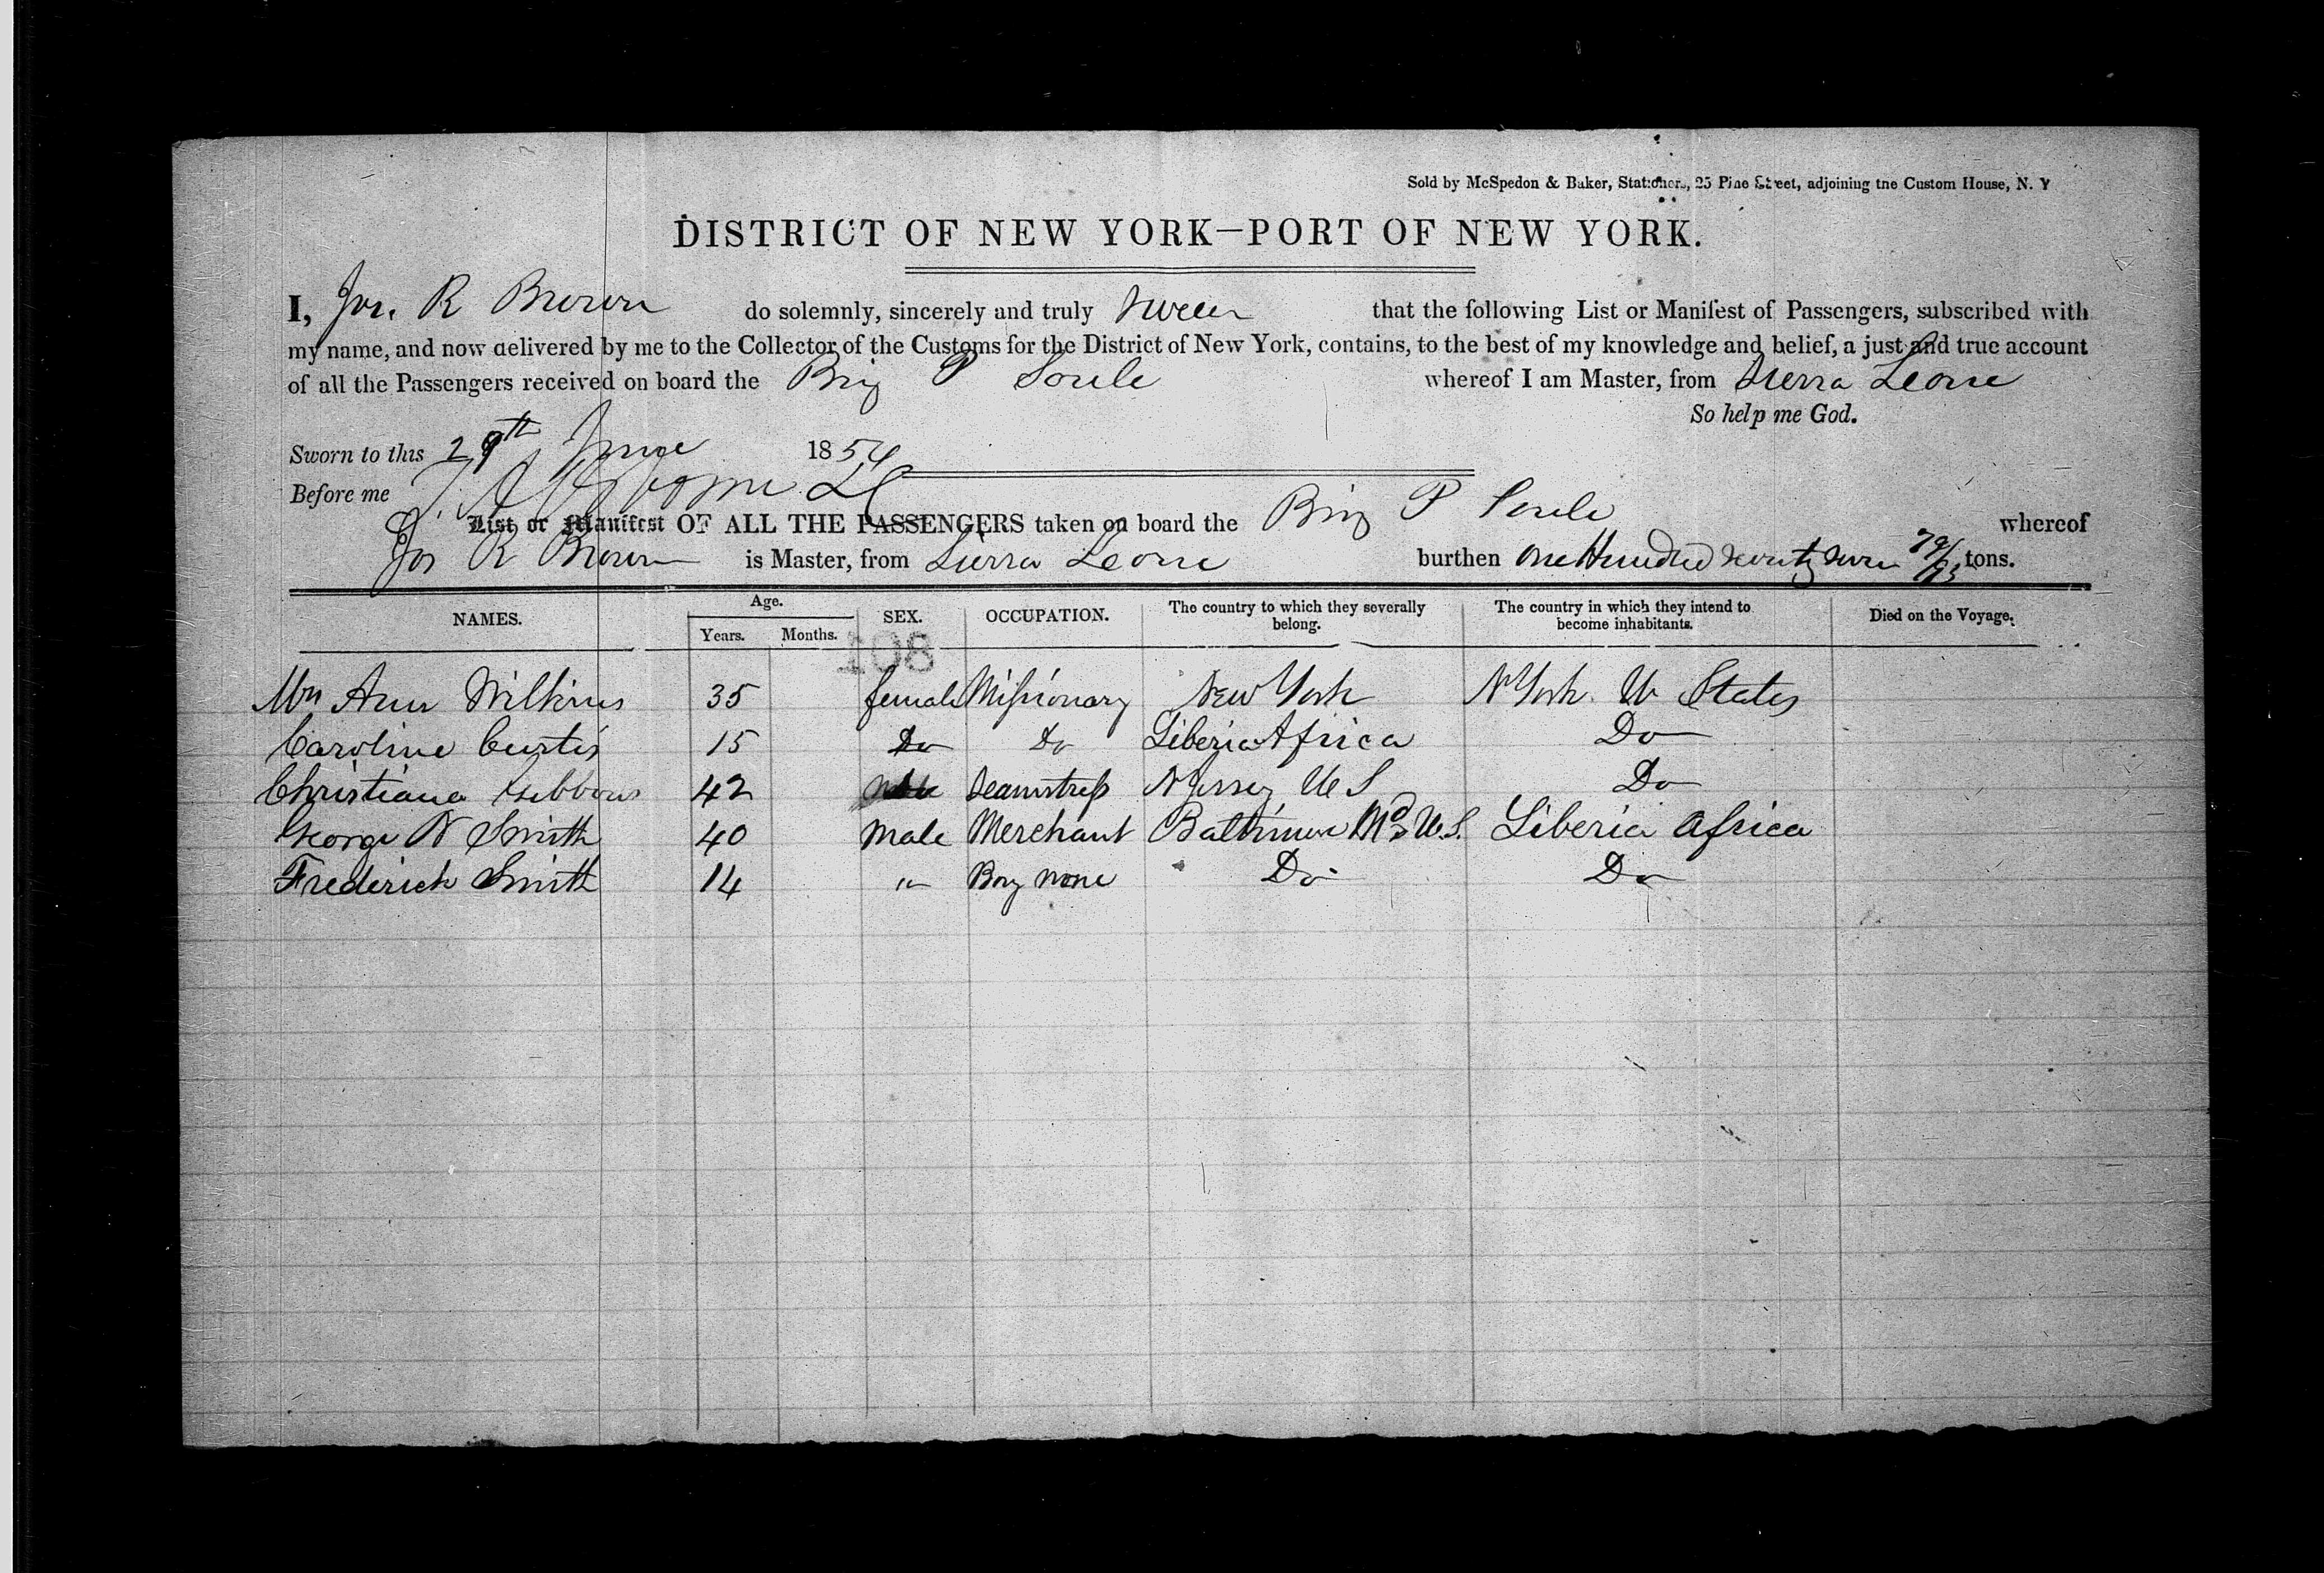 Sold by McSpedon & Baker, Stationers, 25 Pine Street, adjoining the Custom House, N. Y
DISTRICT OF NEW YORK—PORT OF NEW YORK.
I, Jos. R Brown do solemnly, sincerely and truly swear that the following List or Manifest of Passengers, subscribed with
my name, and now delivered by me to the Collector of the Customs for the District of New York, contains, to the best of my knowledge and belief, a just and true account
of all the Passengers received on board the Brig P Soule whereof I am Master, from Sierra Leone
So help me God.
Sworn to this 29th June 1854
Before me
List or Manifest OF ALL THE PASSENGERS taken on board the Brig P Soule whereof
Jos R Brown is Master, from Sierra Leone burthen One Hundred seventy seven tons.
NAMES. Age. Years. Months. SEX. OCCUPATION. The country to which they severally belong. The country in which they intend to become inhabitants. Died on the Voyage.
108
Mrs Ann Wilkins 35 female Missionary New York N York U States
Caroline Curtis 15 Do Do Liberia Africa Do
Christiana Gibbons 42 Seamstress N Jersey U S Do
George N Smith 40 Male Merchant Baltimore Md U.S. Liberia Africa
Frederick Smith 14 " Boy none Do Do